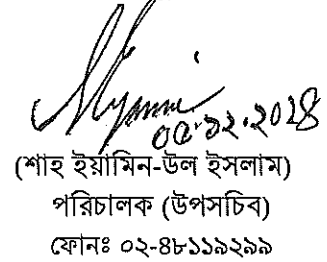 ০৫.১২.২০২৪
(শাহ ইয়ামিন-উল ইসলাম)
পরিচালক (উপসচিব)
ফোনঃ ০২-৪৮১১৯২৯৯